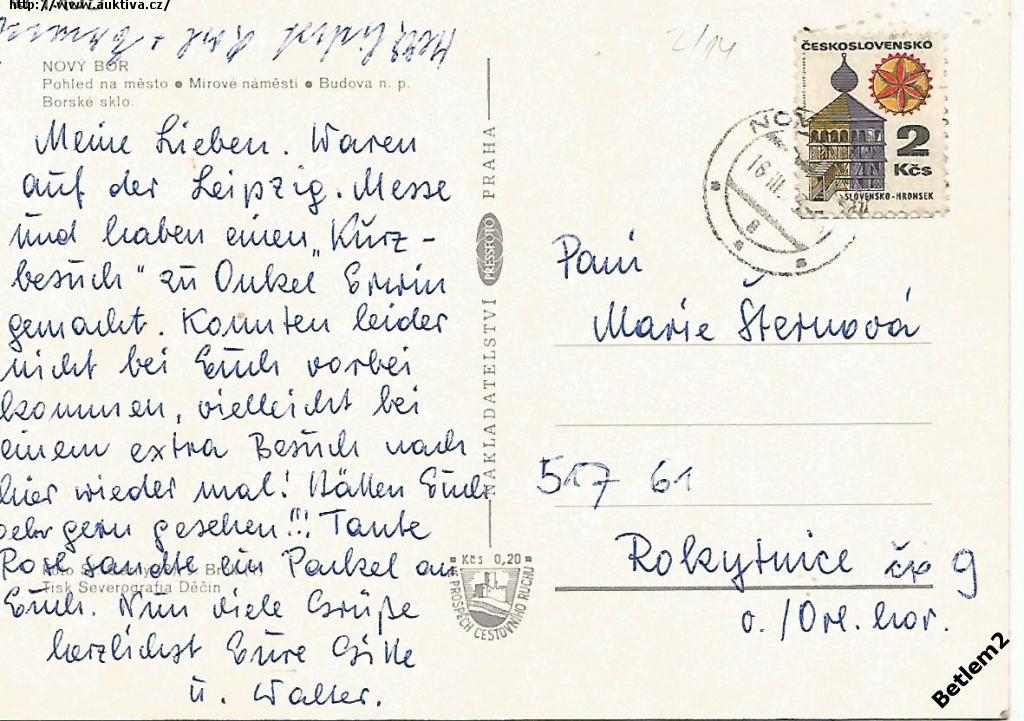 http://www.auktiva.cz/
NOVÝ BOR
Pohled na město ● Mírové náměstí ● Budova n. p.
Borské sklo.
Meine Lieben. Waren
auf der Leipzig. Messe
und haben einen „Kurz-
besuch“ zu Onkel Erwin
gemacht. Konnten leider
nicht bei Euch vorbei
kommen, vielleicht bei
einem extra Besuch nach
hier wieder mal! Hätten Euch
sehr gern gesehen!!! Tante
Rosl sandte ein Packel an
Euch. Nun viele Grüße
herzlichst Eure Gitte
u. Walter.
Tisk Severografia Děčín
NAKLADATELSTVÍ PRESSFOTO PRAHA
Kčs 0,20
VE PROSPĚCH CESTOVNÍHO RUCHU
2/14
ČESKOSLOVENSKO
2
Kčs
SLOVENSKO-HRONSEK
NOV
16 III
a
Paní
Marie Šternová
517 61
Rokytnice čp 9
o./Orl. hor.
Betlem2